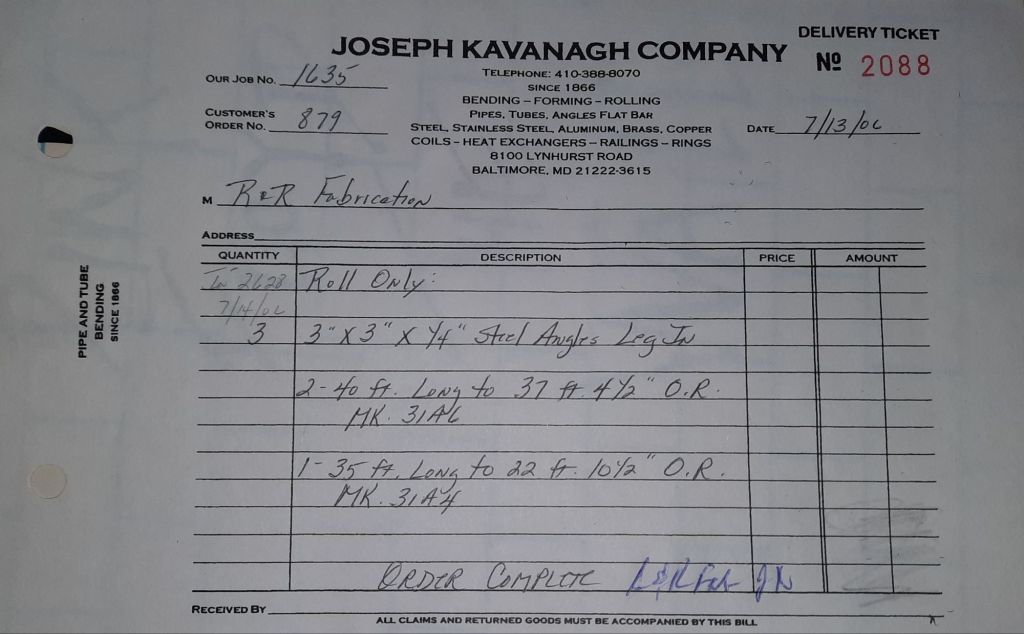 DELIVERY TICKET
JOSEPH KAVANAGH COMPANY
Nº 2088
OUR JOB NO. 1635
TELEPHONE: 410-388-8070
SINCE 1866
BENDING – FORMING – ROLLING
CUSTOMER'S
ORDER NO. 879
PIPES, TUBES, ANGLES FLAT BAR
STEEL, STAINLESS STEEL, ALUMINUM, BRASS, COPPER
DATE 7/13/06
COILS – HEAT EXCHANGERS – RAILINGS – RINGS
8100 LYNHURST ROAD
BALTIMORE, MD 21222-3615
M R&R Fabrication
ADDRESS
QUANTITY DESCRIPTION PRICE AMOUNT
In 2628 Roll Only:
7/14/06
3 3" X 3" X 1/4" Steel Angles Leg In
2-40 ft. Long to 37 ft. 4 1/2" O.R.
MK. 31A6
1-35 ft. Long to 22 ft. 10 1/2" O.R.
MK. 31A4
ORDER COMPLETE R&R Fab
RECEIVED BY
ALL CLAIMS AND RETURNED GOODS MUST BE ACCOMPANIED BY THIS BILL
PIPE AND TUBE
BENDING
SINCE 1866